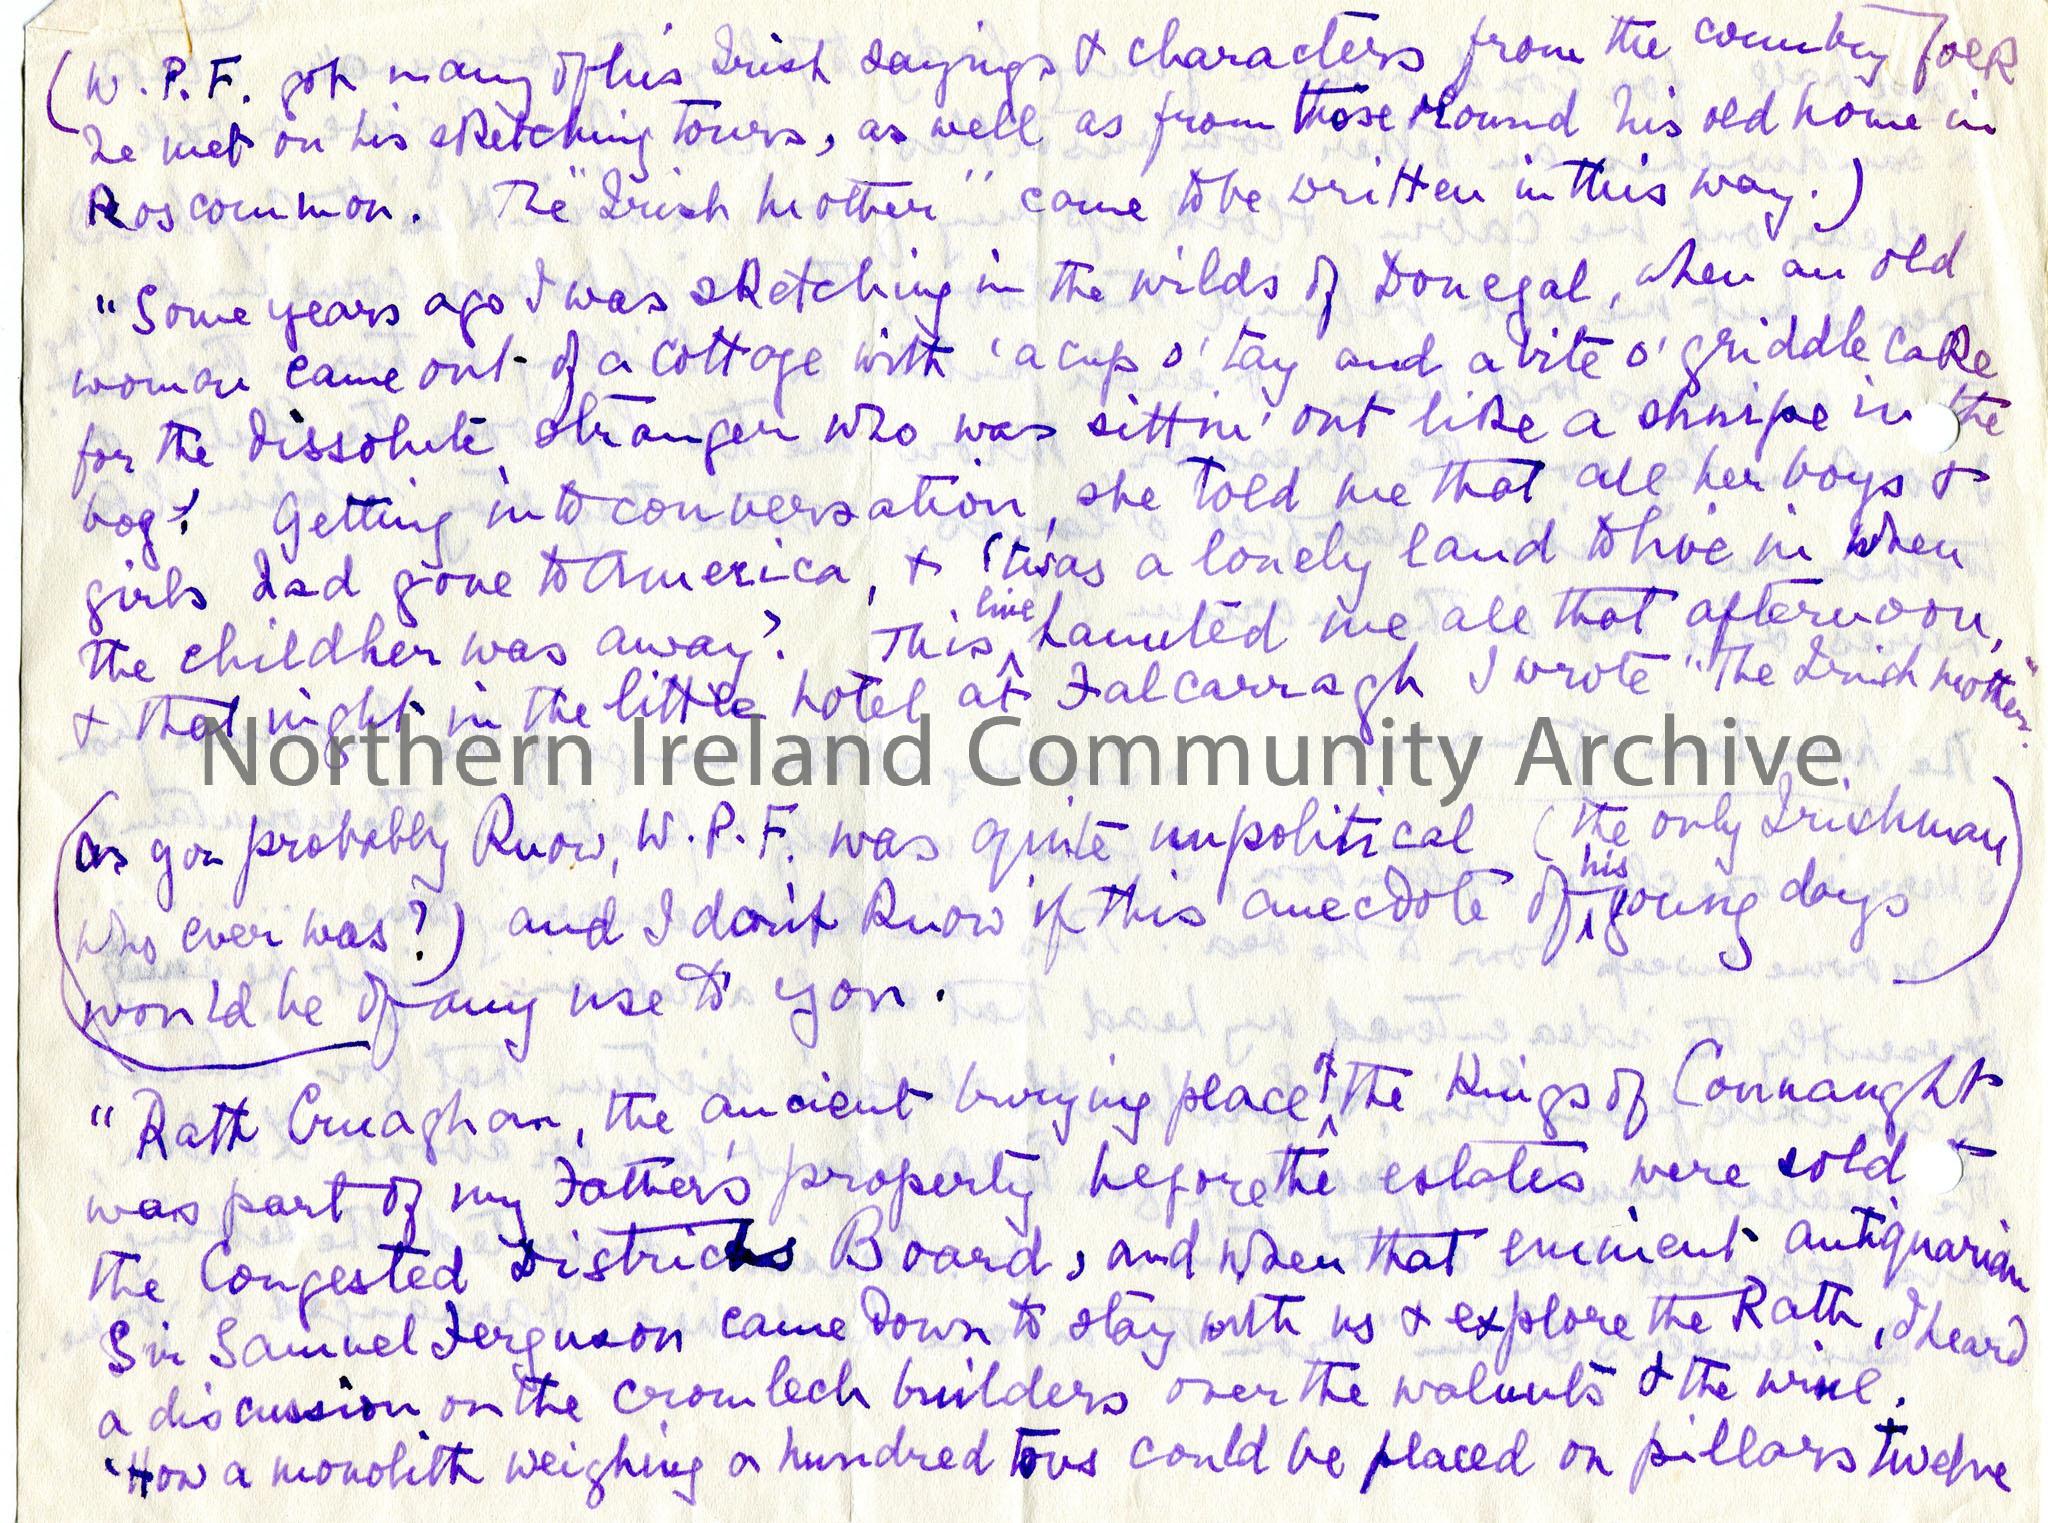 (W.P.F. got many of his Irish sayings & characters from the country folk
he met on his sketching tours, as well as from those round his old home in
Roscommon. The "Irish Mother" came to be written in this way.)
"Some years ago I was sketching in the wilds of Donegal, when an old
woman came out of a cottage with 'a cup o' tay and a bite o' griddle cake
for the dissolute stranger who was sittin' out like a shnipe in the
bog'. Getting into conversation, she told me that all her boys &
girls had gone to America, & 'twas a lonely land to live in when
the childher was away'. This line haunted me all that afternoon,
& that night in the little hotel at Falcarragh I wrote "The Irish Mother".
Northern Ireland Community Archive
(As you probably know, W.P.F. was quite unpolitical (the only Irishman
who ever was?) and I don't know if this anecdote of his young days
would be of any use to you.
"Rath Cruaghan, the ancient burying place of the Kings of Connaught
was part of my Father's property before the estates were sold to
the Congested Districts Board, and when that eminent antiquarian
Sir Samuel Ferguson came down to stay with us & explore the Rath, I heard
a discussion on the cromlech builders over the walnuts & the wine.
'How a monolith weighing a hundred tons could be placed on pillars twelve